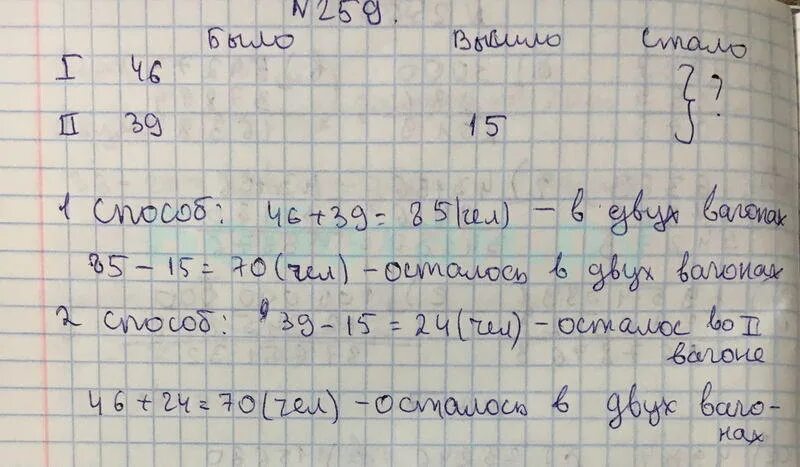 N259.
Было Вышло Стало
I 46
} ?
II 39 15
1 способ: 46+39=85(чел) – в двух вагонах
85–15=70(чел)–осталось в двух вагонах
2 способ: 39–15=24(чел)–осталос во II
вагоне
46+24=70(чел)–осталось в двух ваго-
нах